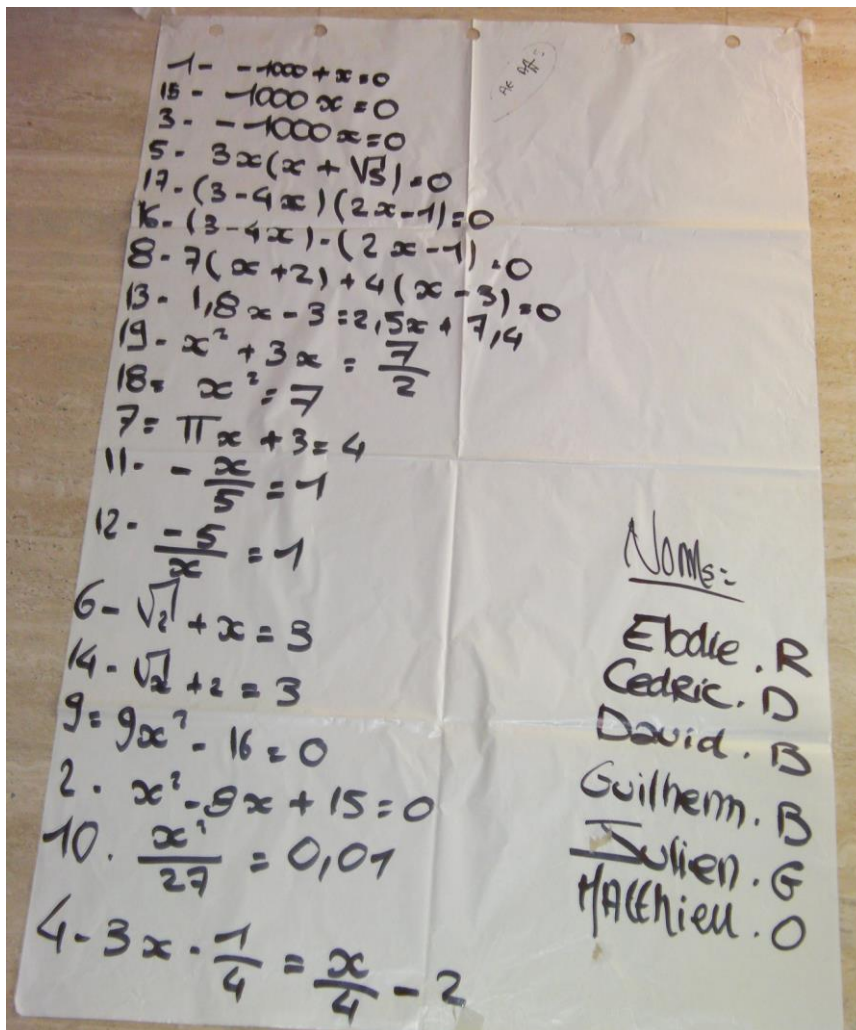 1- -1000+x=0
15- -1000x=0
3- -1000x=0
5- 3x(x+√3)=0
17-(3-4x)(2x-1)=0
16-(3-4x)-(2x-1)=0
8-7(x+2)+4(x-3)=0
13- 1,8x-3=2,5x+7,4
19-x²+3x=7/2
18= x²=7
7= πx+3=4
11- -x/5=1
12- -5/x=1
6-√2+x=3
14-√x+2=3
9=9x²-16=0
2. x²-8x+15=0
10. x²/27=0,01
4-3x-1/4=x/4-2
Noms:
Elodie.R
Cedric.D
David.B
Guilherm.B
Julien.G
Matthieu.O